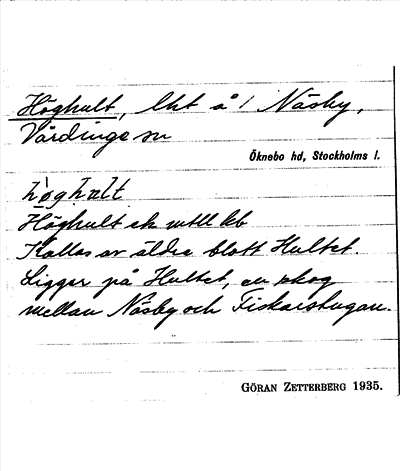 Höghult, lht å 1 Näsby,
Vårdinge sn
Öknebo hd, Stockholms l.
hø̀ghalt
Höghult ek
Kallas av äldre blott Hultet.
Ligger på Hultet, en skog
mellan Näsby och Fiskarstugan.
GÖRAN ZETTERBERG 1935.